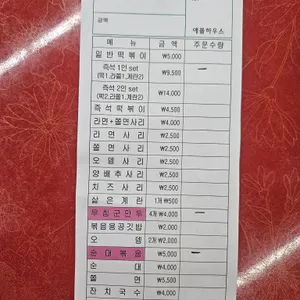 금액
애플하우스
메 뉴 금 액 주문수량
일반떡볶이 ₩5,000
즉석 1인 set
(떡1,라쫄1,계란2) ₩9,500
즉석 2인 set
(떡2,라쫄1,계란2) ₩14,000
즉석떡볶이 ₩4,500
라면+쫄면사리 ₩4,000
라면사리 ₩2,500
쫄면사리 ₩2,500
오뎅사리 ₩2,500
양배추사리 ₩2,500
치즈사리 ₩2,500
삶은계란 1개 ₩500
무침군만두 4개 ₩4,000
볶음용공깃밥 ₩2,000
오 뎅 2개 ₩2,000
순대볶음 ₩5,000
순 대 ₩4,000
쫄 면 ₩5,000
잔치국수 ₩4,000